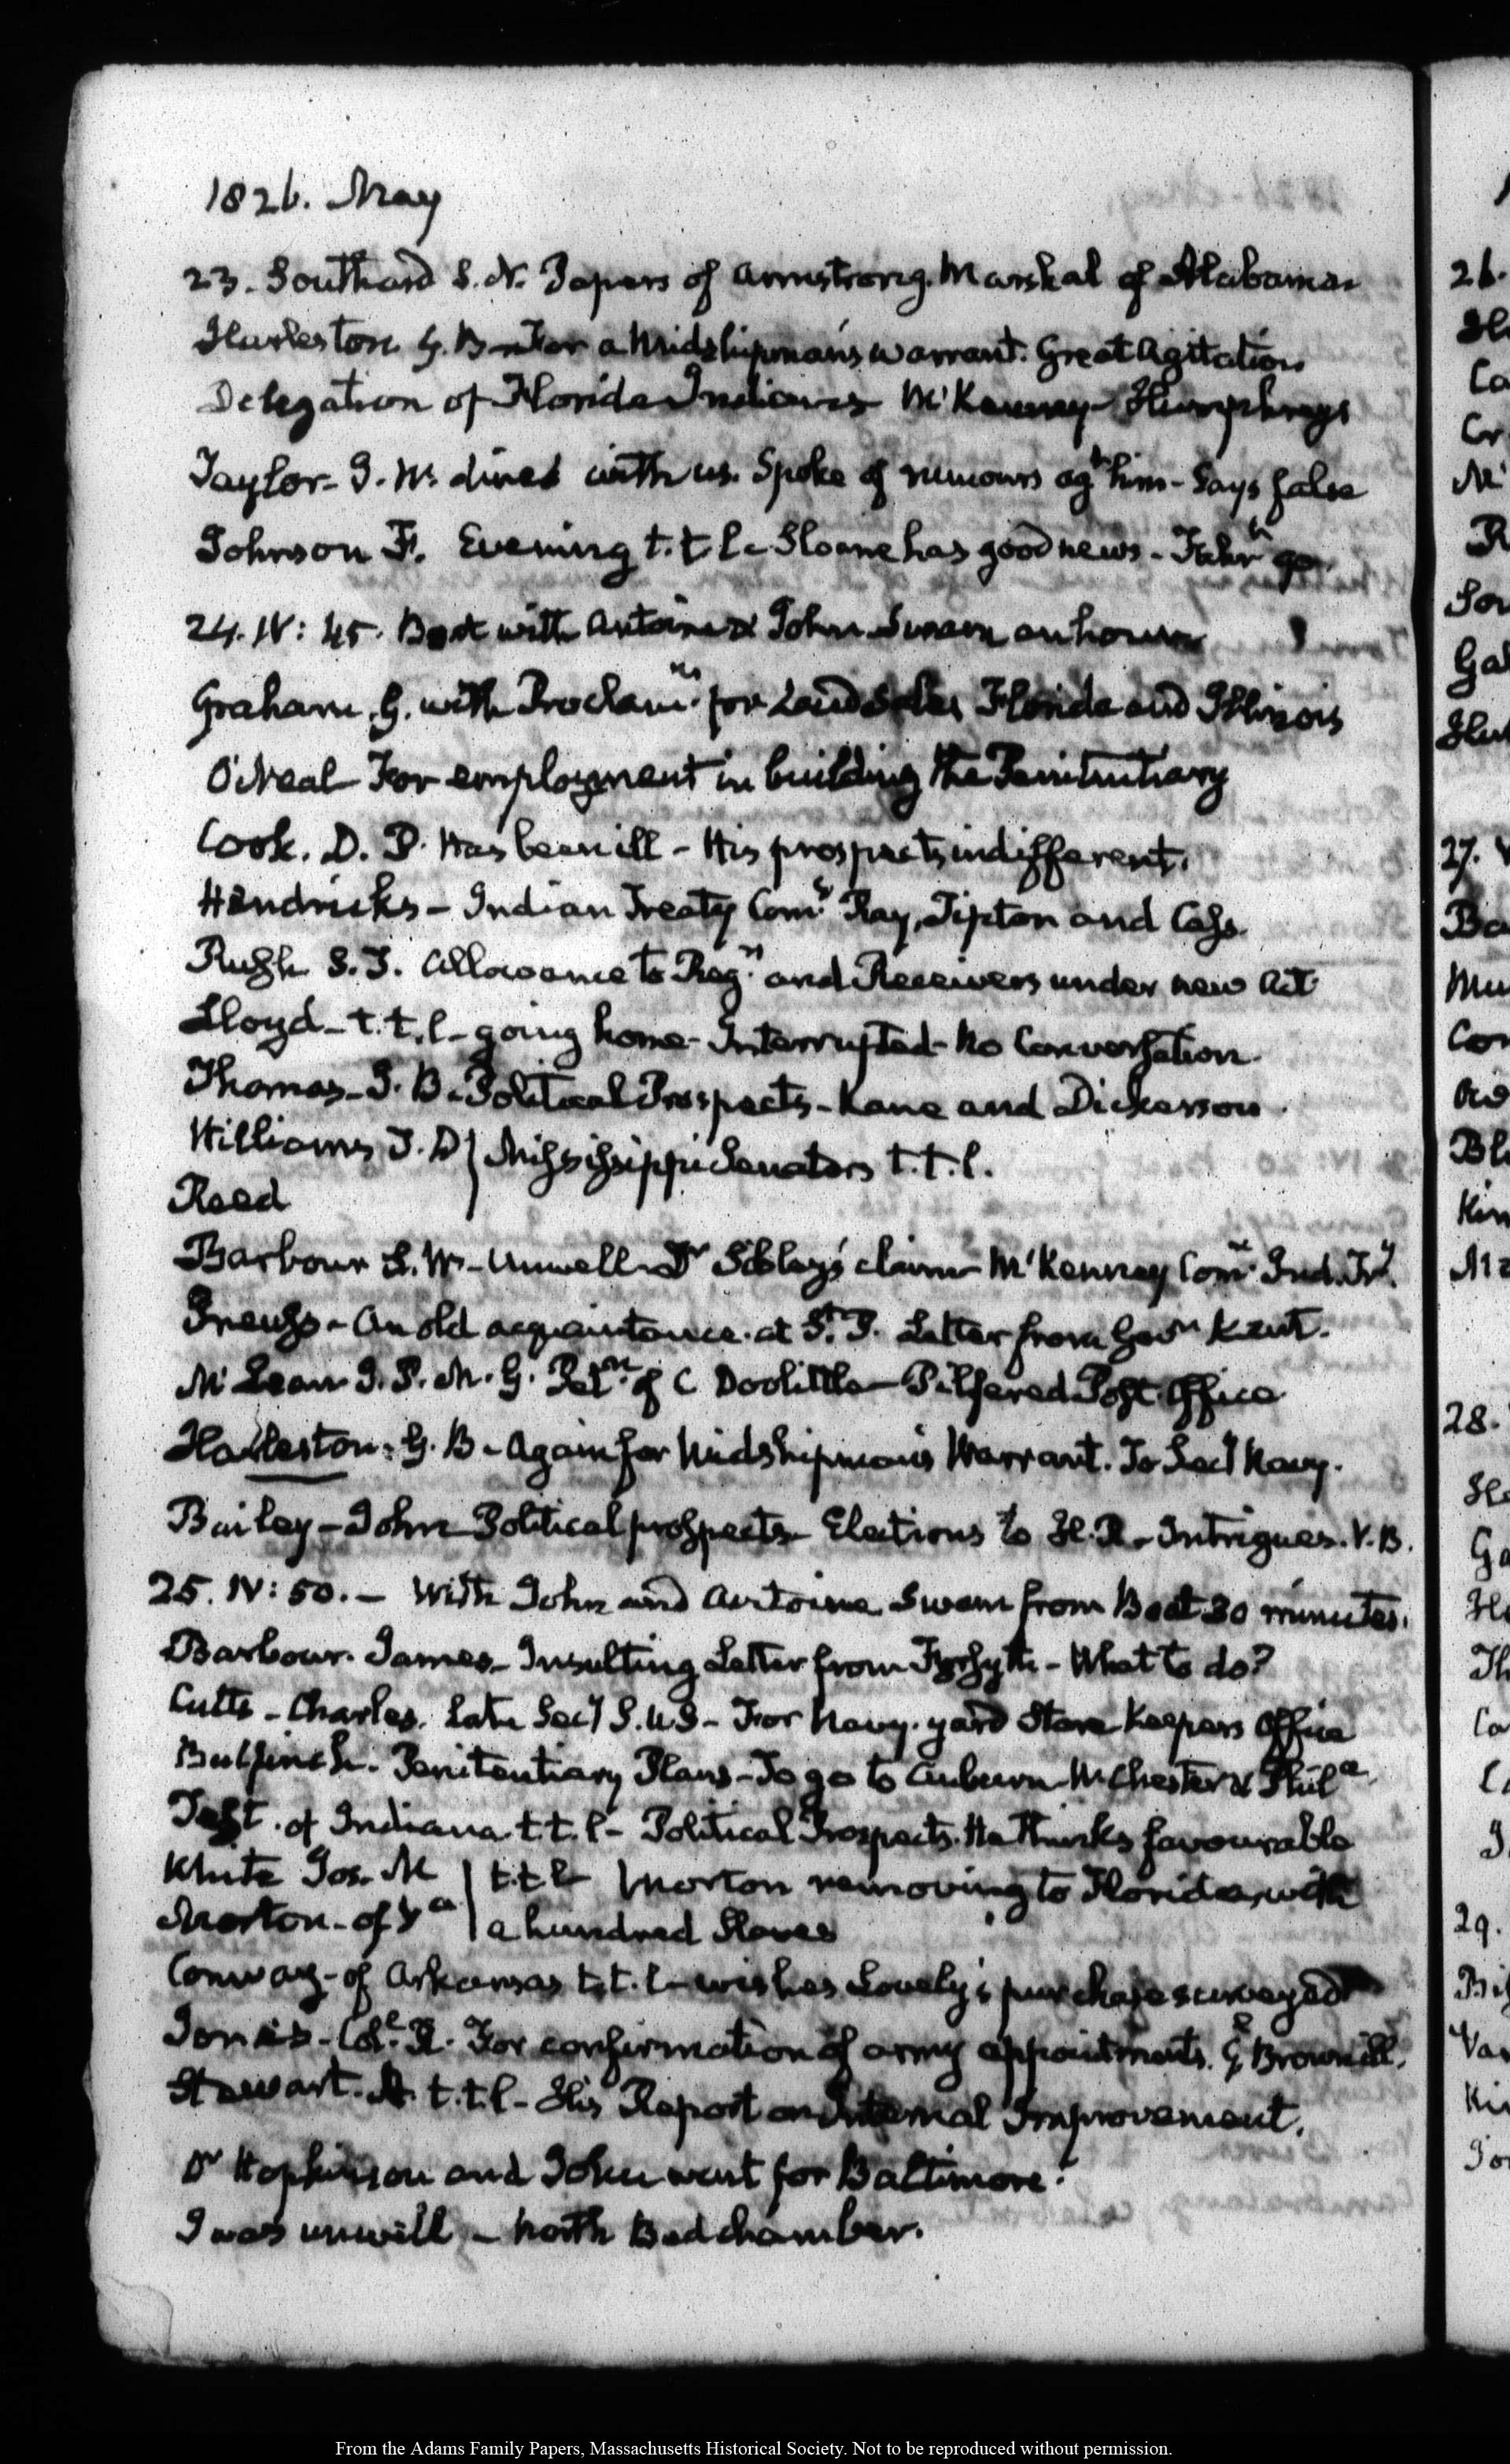 1826. May
23. Southard S. N. Papers of Armstrong. Marshal of Alabama
Harleston G. B. For a Midshipman's warrant. Great Agitation
Delegation of Florida Indians McKenney Humphreys
Taylor J. W. dined with us. Spoke of rumours agt him - Says false
Johnson F. Evening t. t. l. Sloane has good news -
24. IV: 45. Boat with Antoine & John Swam an hour
Graham, G. with Proclamns. for Land Sales Florida and Illinois
O'Neal For employment in building the Penitentiary
Cook. D. P. Has been ill - His prospects indifferent.
Hendricks - Indian Treaty Comrs Ray, Tipton and Cass.
Rush S. T. Allowance to Regrs and Receivers under new Act
Lloyd - t. t. l - going home - Interrupted - No Conversation.
Thomas - J. B. Political Prospects - Kane and Dickerson
Williams T. } Mississippi Senators t. t. l.
Reed
Barbour S. W. - Unwell - Dr Sibley's claim - McKenney Comr Ind. Try.
- An old acquaintance at St. P. Letter from Govr Kent.
McLean J. P. M. G. Petn. of C Doolittle - Pilfered Post Office
Harleston. G. B - Again for Midshipman's Warrant. To Secy Navy.
Bailey - John Political prospects - Elections to H. R - Intrigues. V. B.
25. IV: 50. - With John and Antoine Swam from Boat 30 minutes.
Barbour. James - Insulting Letter from Forsyth - What to do?
Cutts - Charles. Late Secy S. U. S - For Navy-yard Store Keepers Office
Bulfinch. Penitentiary Plans - To go to Auburn W. Chester & Phila.
Test. of Indiana t. t. l - Political Prospects. He thinks favourable
White Jos. M } t. t. l - Morton removing to Florida, with
Morton - of Va } a hundred Slaves
Conway - of Arkansas t. t. l - wishes Lovely's purchase surveyed
Jones - Col. R. For confirmation of army appointments. Gl Brown ill.
Stewart. A. t. t. l - His Report on Internal Improvement.
Dr Hopkinson and John went for Baltimore.
I was unwell - North Bed chamber.
26.
27.
28.
29.
From the Adams Family Papers, Massachusetts Historical Society. Not to be reproduced without permission.